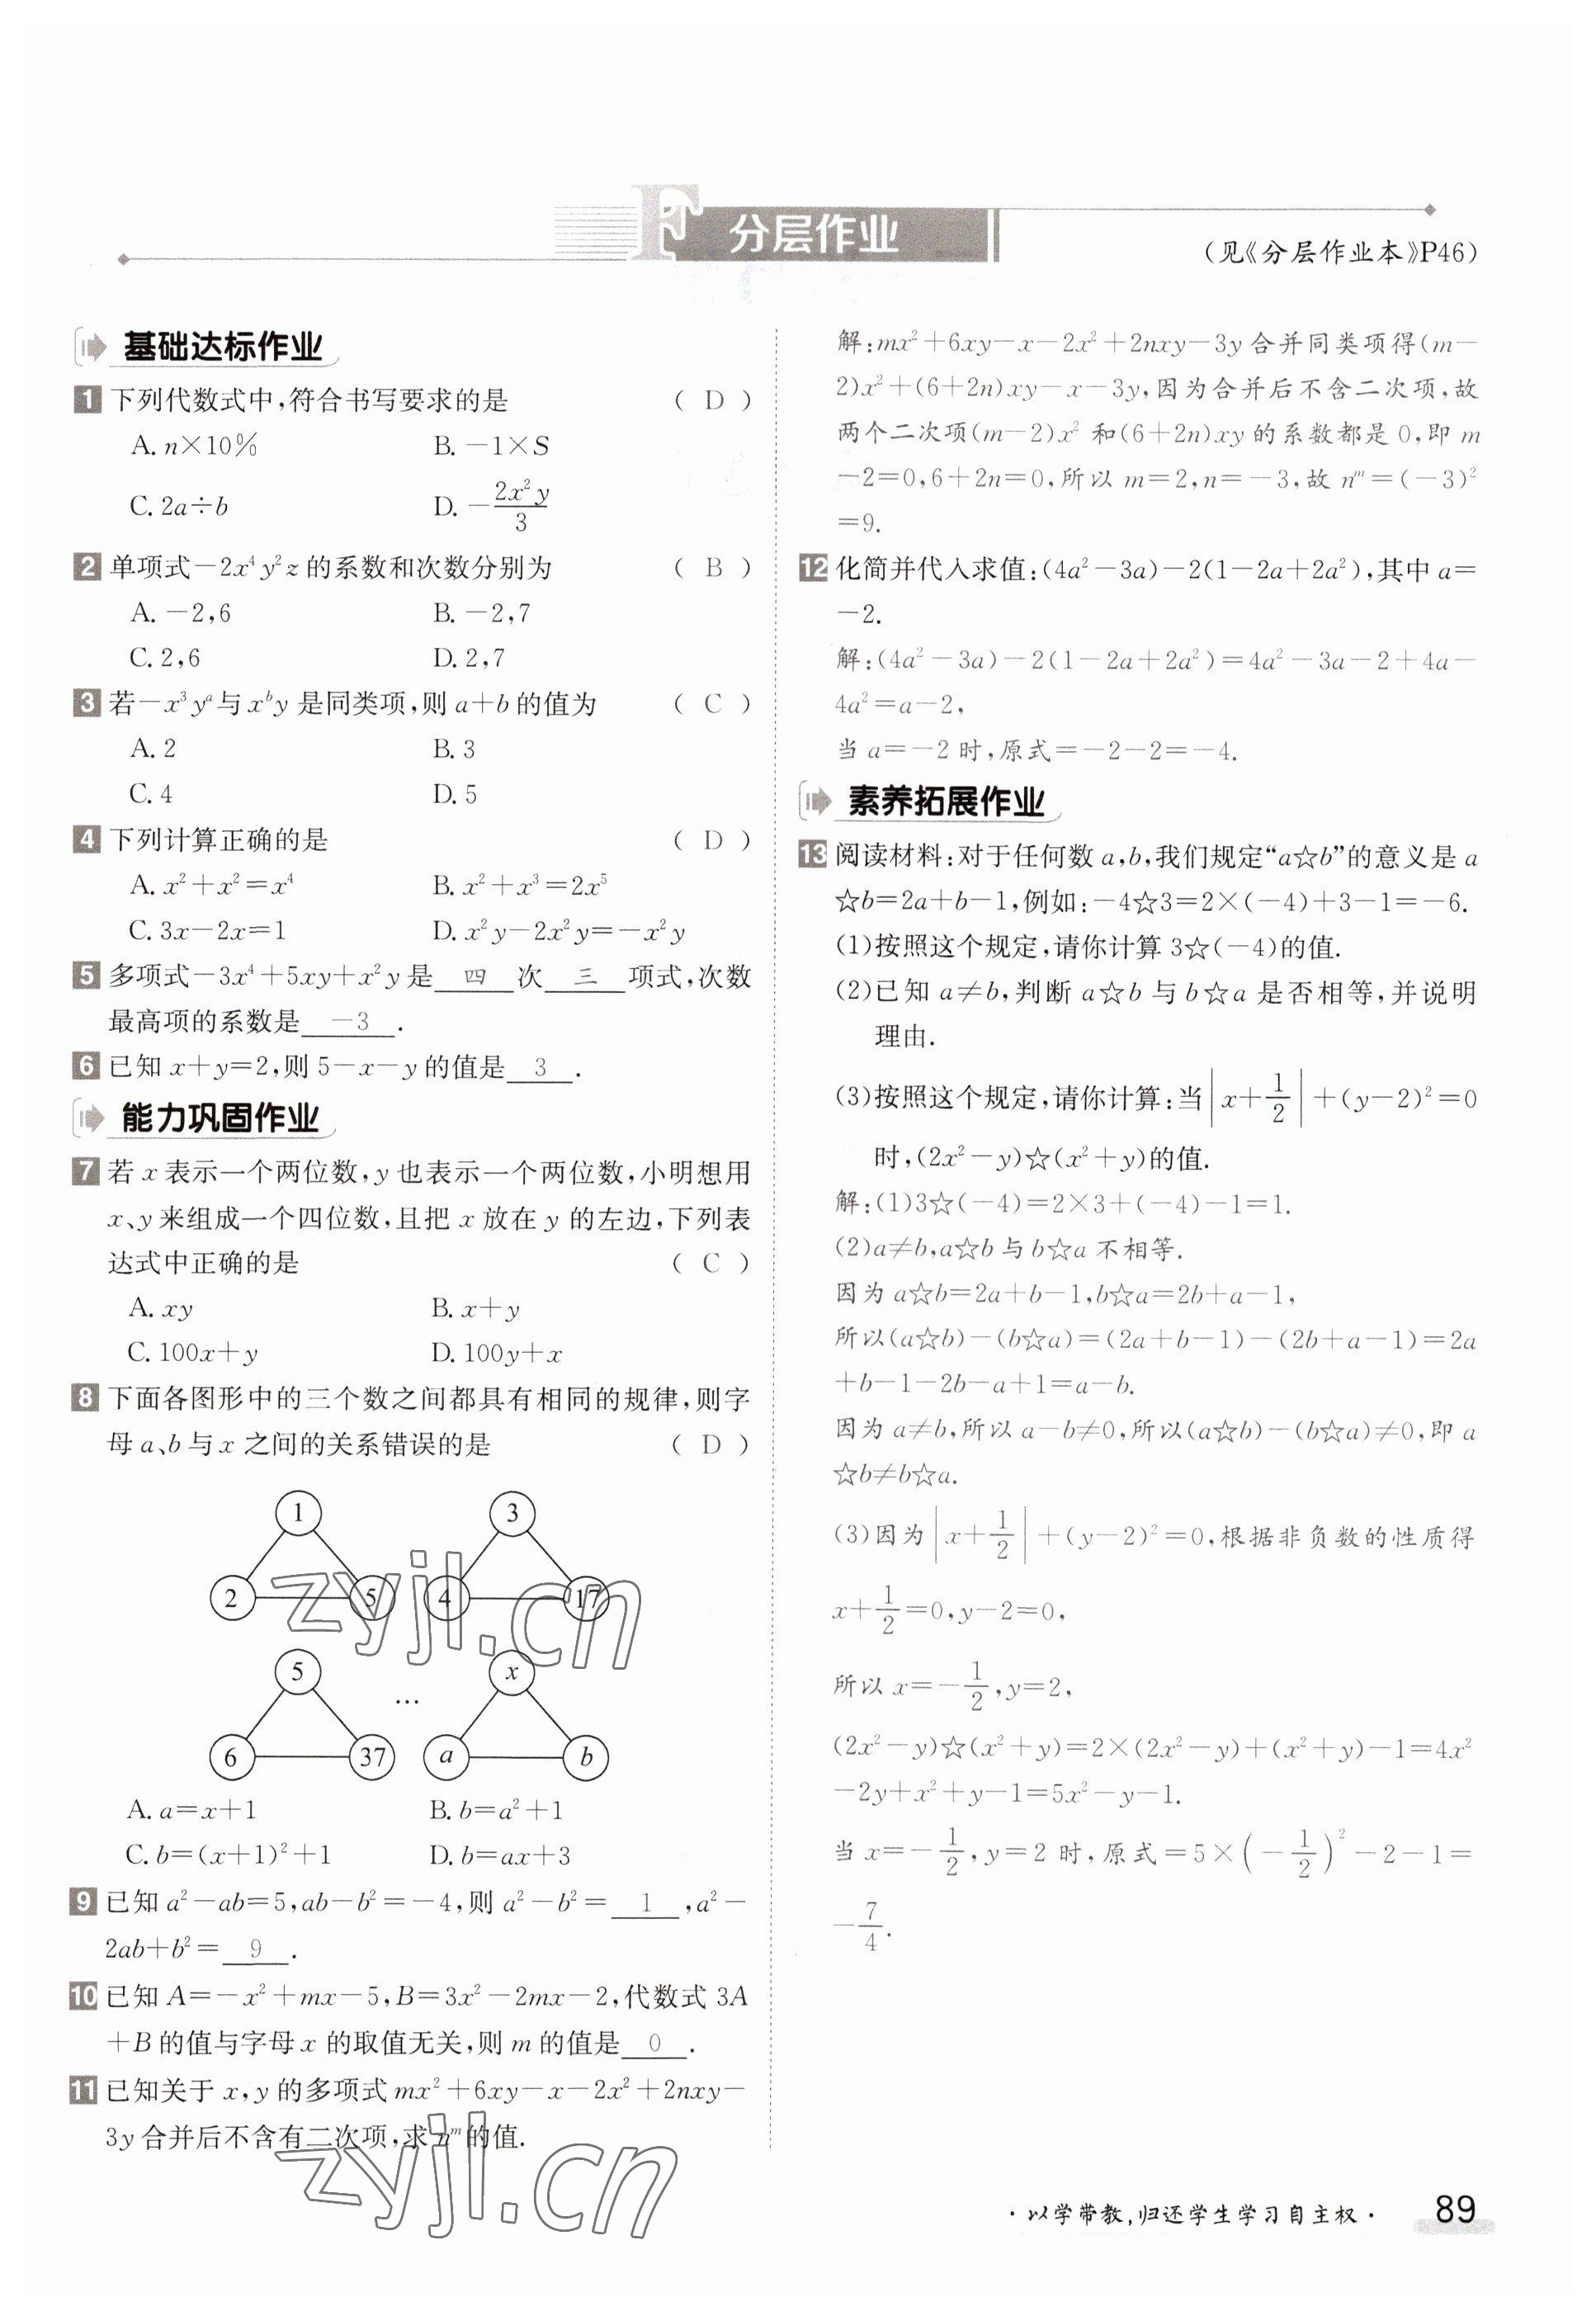 F 分层作业
(见《分层作业本》P46)
基础达标作业
1 下列代数式中,符合书写要求的是 ( D )
A. n×10% B. −1×S
C. 2a÷b D. −2x²y/3
2 单项式−2x⁴y²z的系数和次数分别为 ( B )
A. −2,6 B. −2,7
C. 2,6 D. 2,7
3 若−x³yᵃ与xᵇy是同类项,则a+b的值为 ( C )
A. 2 B. 3
C. 4 D. 5
4 下列计算正确的是 ( D )
A. x²+x²=x⁴ B. x²+x³=2x⁵
C. 3x−2x=1 D. x²y−2x²y=−x²y
5 多项式−3x⁴+5xy+x²y是 四 次 三 项式,次数
最高项的系数是 −3 .
6 已知x+y=2,则5−x−y的值是 3 .
能力巩固作业
7 若x表示一个两位数,y也表示一个两位数,小明想用
x、y来组成一个四位数,且把x放在y的左边,下列表
达式中正确的是 ( C )
A. xy B. x+y
C. 100x+y D. 100y+x
8 下面各图形中的三个数之间都具有相同的规律,则字
母a、b与x之间的关系错误的是 ( D )
1 3
2 5 4 17
5 … x
6 37 a b
A. a=x+1 B. b=a²+1
C. b=(x+1)²+1 D. b=ax+3
9 已知a²−ab=5,ab−b²=−4,则a²−b²= 1 ,a²−
2ab+b²= 9 .
10 已知A=−x²+mx−5,B=3x²−2mx−2,代数式3A
+B的值与字母x的取值无关,则m的值是 0 .
11 已知关于x,y的多项式mx²+6xy−x−2x²+2nxy−
3y合并后不含有二次项,求nᵐ的值.
解:mx²+6xy−x−2x²+2nxy−3y合并同类项得(m−
2)x²+(6+2n)xy−x−3y,因为合并后不含二次项,故
两个二次项(m−2)x²和(6+2n)xy的系数都是0,即m
−2=0,6+2n=0,所以m=2,n=−3,故nᵐ=(−3)²
=9.
12 化简并代入求值:(4a²−3a)−2(1−2a+2a²),其中a=
−2.
解:(4a²−3a)−2(1−2a+2a²)=4a²−3a−2+4a−
4a²=a−2,
当a=−2时,原式=−2−2=−4.
素养拓展作业
13 阅读材料:对于任何数a,b,我们规定“a☆b”的意义是a
☆b=2a+b−1,例如:−4☆3=2×(−4)+3−1=−6.
(1)按照这个规定,请你计算3☆(−4)的值.
(2)已知a≠b,判断a☆b与b☆a是否相等,并说明
理由.
(3)按照这个规定,请你计算:当|x+1/2|+(y−2)²=0
时,(2x²−y)☆(x²+y)的值.
解:(1)3☆(−4)=2×3+(−4)−1=1.
(2)a≠b,a☆b与b☆a不相等.
因为a☆b=2a+b−1,b☆a=2b+a−1,
所以(a☆b)−(b☆a)=(2a+b−1)−(2b+a−1)=2a
+b−1−2b−a+1=a−b.
因为a≠b,所以a−b≠0,所以(a☆b)−(b☆a)≠0,即a
☆b≠b☆a.
(3)因为|x+1/2|+(y−2)²=0,根据非负数的性质得
x+1/2=0,y−2=0,
所以x=−1/2,y=2,
(2x²−y)☆(x²+y)=2×(2x²−y)+(x²+y)−1=4x²
−2y+x²+y−1=5x²−y−1.
当x=−1/2,y=2时,原式=5×(−1/2)²−2−1=
−7/4.
zyjl.cn
zyjl.cn
·以学带教,归还学生学习自主权· 89